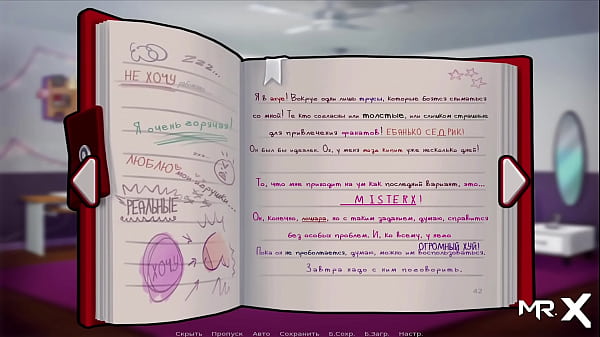 Zzz...
НЕ ХОЧУ
Я очень горячая!
ЛЮБЛЮ мои игрушки...
РЕАЛЬНЫЕ
ХОЧУ
Я в ахуе! Вокруг одни лишь трусы, которые боятся сниматься
со мной! Те кто согласны или толстые, или слишком страшные
для привлечения гранатов! ЕБАНЬКО СЕДРИК!
Он был бы идеален. Ох, у меня моза кипит уже несколько дней!
То, что мне приходит на ум как последний вариант, это...
MISTERX!
Он, конечно, лошара, но с таким заданием, думаю, справится
без особых проблем. И, ко всему, у него
ОГРОМНЫЙ ХУЙ!
Пока он не проболтается, думаю, можно им воспользоваться.
Завтра надо с ним поговорить.
42
MR. X
Скрыть Пропуск Авто Сохранить Б.Сохр. Б.Загр. Настр.